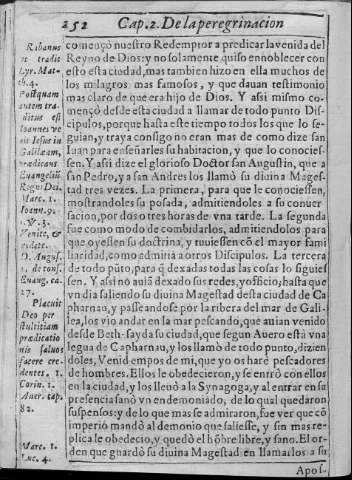 252 Cap. 2. De la peregrinacion
començò nuestro Redemptor a predicar la venida del
Reyno de Dios: y no solamente quiso ennoblecer con
esto esta ciudad, mas tambien hizo en ella muchos de
los milagros mas famosos, y que dauan testimonio
mas claro de que era hijo de Dios. Y assi mismo co-
mençó desde esta ciudad a llamar de todo punto Dis-
cipulos, porque hasta este tiempo todos los que lo se-
guian, y traya consigo no eran mas de como dize san
Iuan para enseñarles su habitacion, y que lo conocies-
sen. Y assi dize el glorioso Doctor san Augustin, que a
san Pedro, y a san Andres los llamò su diuina Mages-
tad tres vezes. La primera, para que le conociessen,
mostrandoles su posada, admitiendolos a su conuer-
sacion, por dos o tres horas de vna tarde. La segunda
fue como modo de combidarlos, admitiendolos para
que oyessen su doctrina, y tuuiessen cõ el mayor fami
liaridad, como admitia a otros Discipulos. La tercera
de todo pũto, para q̃ dexadas todas las cosas lo siguies
sen. Y assi no auiã dexado sus redes, y officio, hasta que
vn dia saliendo su diuina Magestad desta ciudad de Ca
pharnau, y passeandose por la ribera del mar de Gali-
lea, los vio andar en la mar pescando, que auian venido
desde Beth-sayda su ciudad, que segun Auero està vna
legua de Capharnau, y los llamò de todo punto, dizien
doles, Venid empos de mi, que yo os harè pescadores
de hombres. Ellos le obedecieron, y se entrò con ellos
en la ciudad, y los lleuò a la Synagoga, y al entrar en su
presencia sanò vn endemoniado, de lo qual quedaron
suspensos: y de lo que mas se admiraron, fue ver que cõ
imperio mandò al demonio que saliesse, y sin mas re-
plica le obedecio, y quedò el hõbre libre, y sano. El or-
den que guardò su diuina Magestad en llamarlos a su
Apos-
Rabanus
te tradit
Lyr. Mat-
th. 4.
Postquam
autem tra-
ditus est
Ioannes ve
nit Iesus in
Galilæam,
prædicans
Euangeliũ
Regni Dei.
Marc. 1.
Ioann. 9.
1. V. 3.
Venite, &
videte.
D. Augus.
2. de cons.
Euang. ca.
27.
Placuit
Deo per
stultitiam
prædicatio
nis saluos
facere cre-
dentes. 1.
Corin. 1.
Auer. cap.
82.
Marc. 1.
Luc. 4.